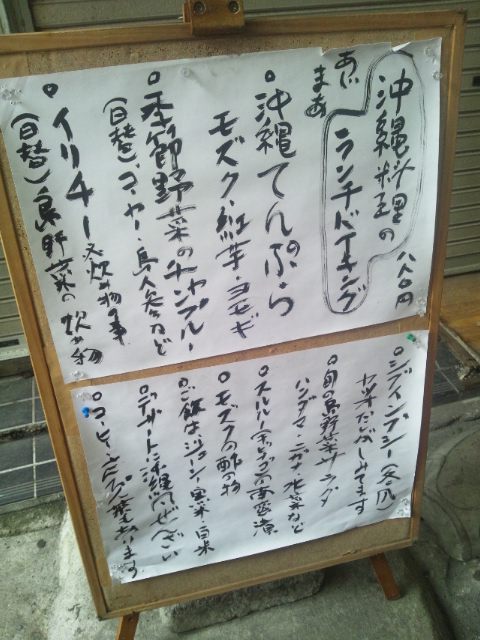 沖縄料理の
ランチバイキング
八八〇円
あじ
まあ
○沖縄てんぷら
モズク・紅芋・ヨモギ
○季節野菜のチャンプルー
(日替)ゴーヤー・島人参など
○イリチー 炊め物の事
(日替)島野菜の炊め物
○シブインブシー(冬瓜)
カツオだしがしみてます
○旬の島野菜サラダ
ハンダマ・ニガナ・水菜など
○スルルー(キビナゴ)の南蛮漬
○モズクの酢の物
○ご飯はジューシー・黒米・白米
○デザート 沖縄風ぜんざい
○コーヒー・さんぴん茶もあります